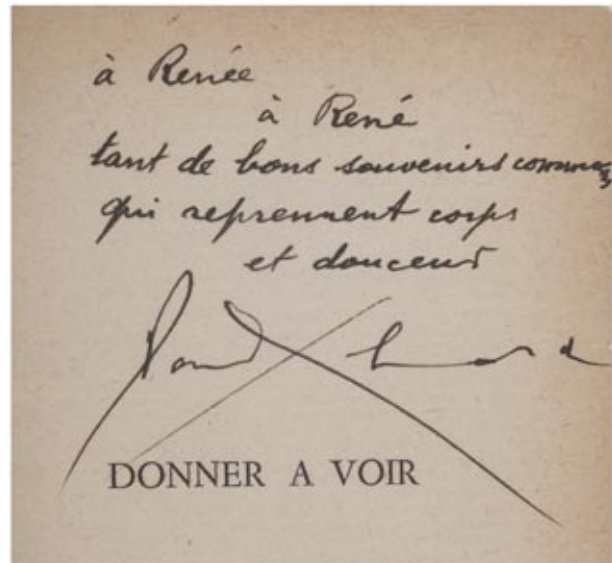 à Renée
à René
tant de bons souvenirs communs
qui reprennent corps
et douceur
Paul Eluard
DONNER A VOIR